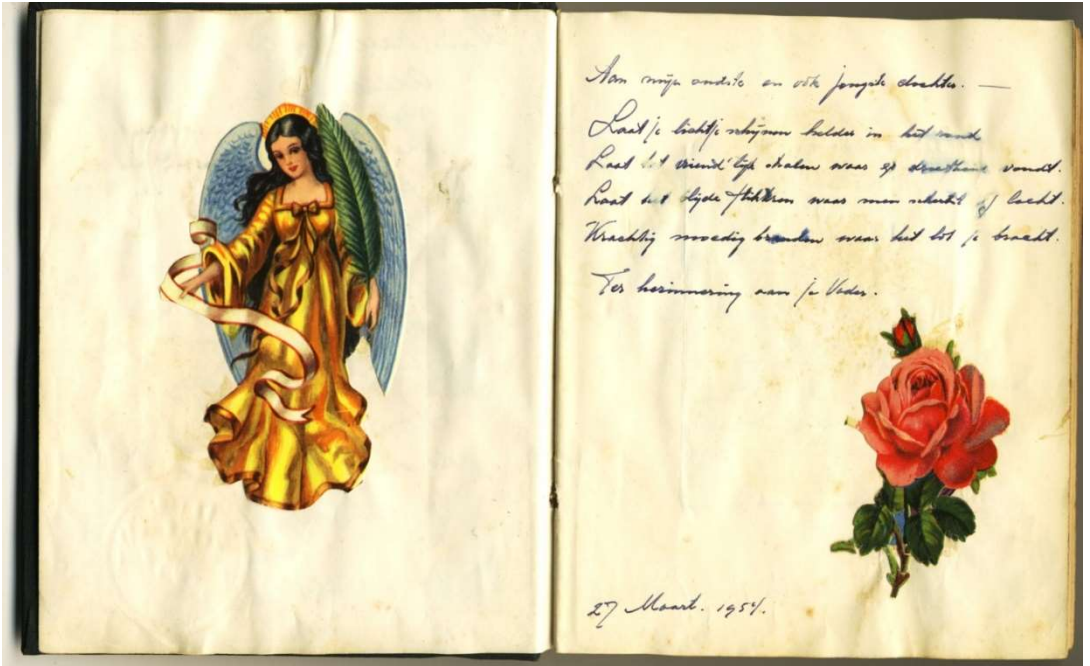 Aan mijn oudste en ook jongste dochter. —
Laat je lichtje schijnen helder in het rond
Laat het vriend'lijk stralen waar ge droefheid vondt.
Laat het blijde flikk'ren waar men schertst of lacht.
Krachtig moedig branden waar het lot je bracht.
Ter herinnering aan je Vader.
27 Maart. 1954.